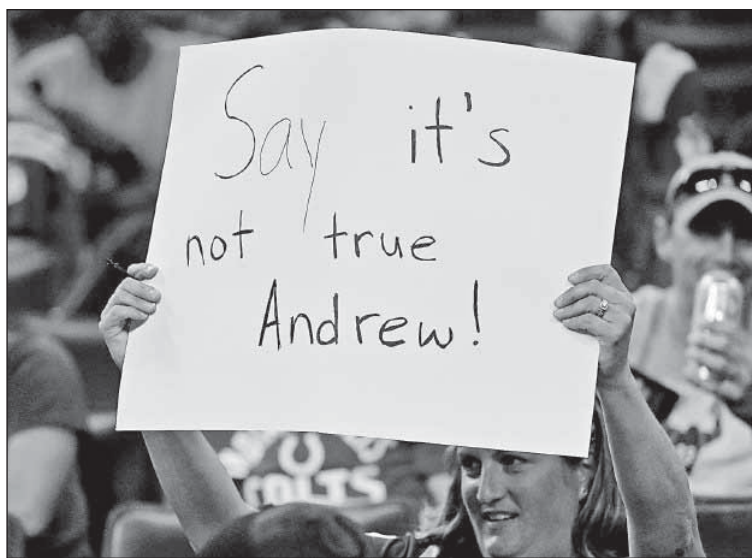 Say it's
not true
Andrew!
COLTS